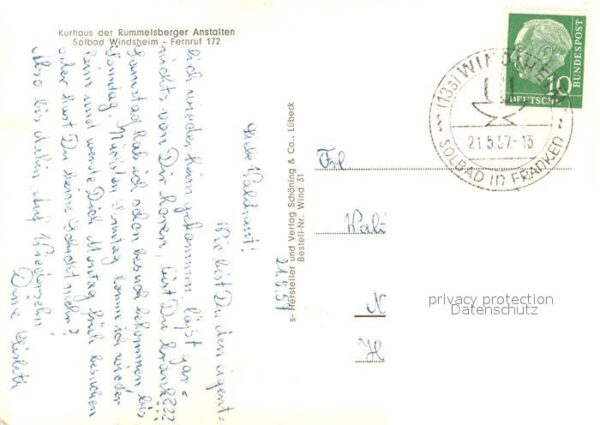 Kurhaus der Rummelsberger Anstalten
Solbad Windsheim - Fernruf 172
21.5.57
Liebe Waldtraut!
Wie bist Du denn eigent=
lich wieder heim gekommen, läßt gar=
nichts von Dir hören, bist Du krank???
Samstag hab ich schon besuch bekommen bis
Sonntag. Nächsten Sonntag komm ich wieder
heim und werde Dich Montag früh besuchen
oder hast Du keine Schicht mehr?
Also bis dahin Auf Wiedersehn!
Deine
s- Hersteller und Verlag Schöning & Co., Lübeck
Bestell-Nr. Wind 31
Frl
DEUTSCHE BUNDESPOST
10
(13a) WINDSHEIM
21.5.57-13
SOLBAD IN FRANKEN
privacy protection
Datenschutz